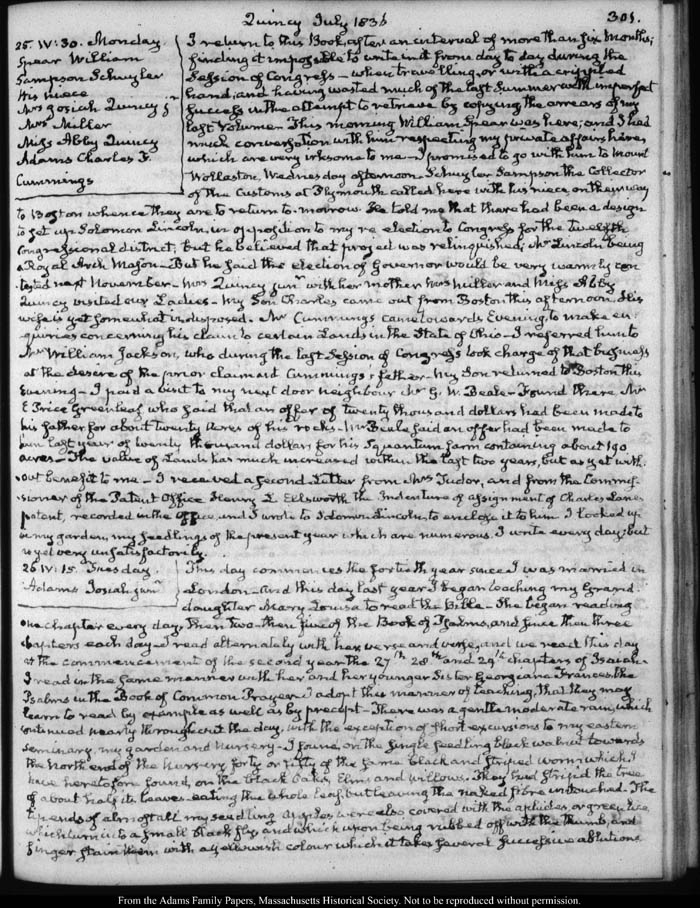 Quincy July 1836
301.
25. IV:30. Monday.
Spear William
Sampson Schuyler
His niece
Mrs Josiah Quincy jr
Mrs Miller
Miss Abby Quincy
Adams Charles F.
Cummings
I return to this Book, after an interval of more than six Months;
finding it impossible to write in it from day to day during the
Session of Congress – when travelling, or with a crippled
hand; and having wasted much of the last Summer with imperfect
success in the attempt to retrieve by copying the arrears of my
last Volume. This morning William Spear was here; and I had
much conversation with him respecting my private affairs here,
which are very irksome to me – I promised to go with him to Mount
Wollaston, Wednesday afternoon – Schuyler Sampson the Collector
of the Customs at Plymouth called here with his niece, on their way
to Boston whence they are to return to-morrow. He told me that there had been a design
to set up Solomon Lincoln, in opposition to my re-election to Congress for the twelfth
Congressional district, but he believed that project was relinquished; Mr Lincoln being
a Royal Arch Mason – But he said the election of Governor would be very warmly con
tested next November – Mrs Quincy junr with her mother Mrs Miller and Miss Abby
Quincy visited our Ladies – My Son Charles came out from Boston this afternoon. His
wife is yet somewhat indisposed. Mr Cummings came towards Evening, to make en
quiries concerning his claim to certain Lands in the State of Ohio – I referred him to
Mr William Jackson, who during the last Session of Congress took charge of that business
at the desire of the prior claimant Cummings's father – My Son returned to Boston this
Evening – I paid a visit to my next door neighbour Mr G. W. Beale – Found there Mr
E Price Greenleaf who said that an offer of twenty thousand dollars had been made to
his father for about twenty Acres of his rocks – Mr Beale said an offer had been made to
him last year of twenty thousand dollars for his Squantum farm containing about 190
acres – The value of Lands has much increased within the last two years, but as yet with-
out benefit to me – I received a second Letter from Mrs Tudor, and from the Commis-
sioner of the Patent Office Henry L Ellsworth the Indenture of assignment of Charles Lane's
patent, recorded in the Office, and I wrote to Solomon Lincoln, to enclose it to him I looked up
in my garden, my seedlings of the present year which are numerous. I write every day; but
as yet very unsatisfactorily.
26. IV:15. Tuesday.
Adams Josiah junr
This day commences the fortieth year since I was married in
London – And this day last year I began teaching my Grand
daughter Mary Louisa to read the Bible – She began reading
one chapter every day, then two – then five of the Book of Psalms, and since then three
chapters each day – I read alternately with her verse and verse, and we read this day
at the commencement of the second year the 27th 28th and 29th chapters of Isaiah
I read in the same manner with her and her younger Sister Georgiana Frances the
Psalms in the Book of Common Prayer – I adopt this manner of teaching, that they may
learn to read by example as well as by precept – There was a gentle moderate rain, which
continued nearly throughout the day, with the exception of short excursions to my eastern
seminary, my garden and Nursery – I found, on the single seedling black walnut towards
the North end of the Nursery forty or fifty of the same black and striped worm which I
have heretofore found, on the black Oaks, Elms and willows. They had stripped the tree
of about half its leaves eating the whole leaf, but leaving the naked fibre untouched. The
tip ends of almost all my seedling Apples were also covered with the aphides, or green lice,
which turn into a small black fly, and which upon being rubbed off with the thumb, and
finger stain them with a yellowish colour which it takes several successive ablutions
From the Adams Family Papers, Massachusetts Historical Society. Not to be reproduced without permission.